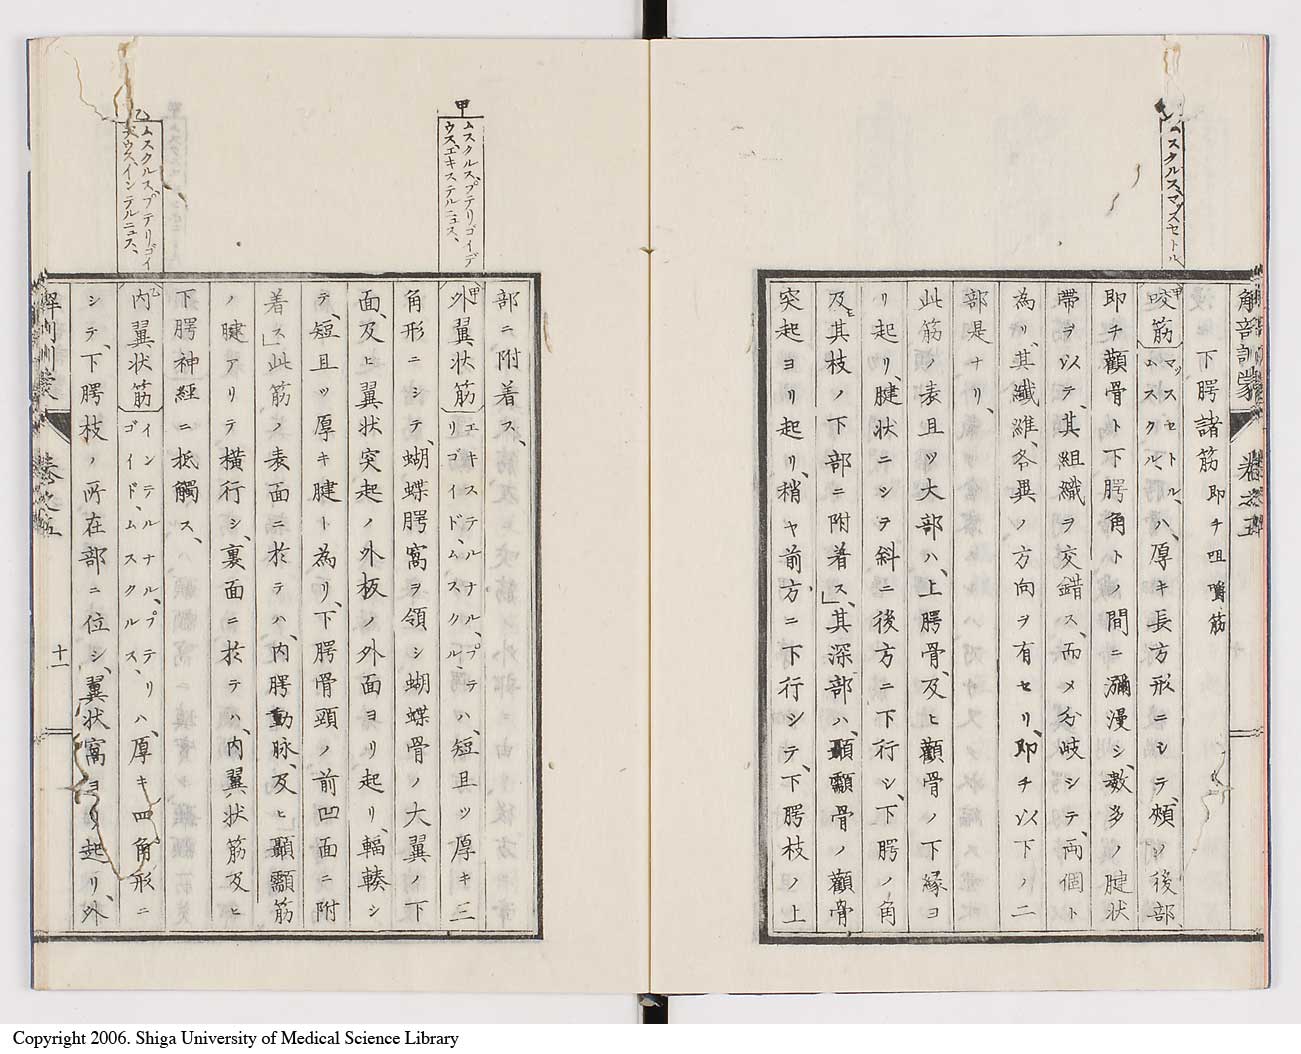 ムスクルス、マッスセトル
解剖訓蒙 巻之五
下腭諸筋 即チ咀嚼筋
甲咬筋 マッスセトル、ムスクル、ハ、厚キ長方形ニシテ、頰ノ後部、
即チ顴骨ト下腭角トノ間ニ瀰漫シ、数多ノ腱状
帶ヲ以テ、其組織ヲ交錯ス、而メ分岐シテ、両個ト
為リ、其纖維、各異ノ方向ヲ有セリ、即チ以下ノ二
部是ナリ、
此筋ノ表且ツ大部ハ、上腭骨、及ヒ顴骨ノ下緣ヨ
リ起リ、腱状ニシヲ斜ニ後方ニ下行シ、下腭ノ角
及ヒ其枝ノ下部ニ附着ス」其深部ハ、顳顬骨ノ顴骨
突起ヨリ起リ、稍ヤ前方ニ下行シテ、下腭枝ノ上
甲
ムスクルス、プテリゴイデ
ウス、エキステルニュス、
乙
ムスクルス、プテリゴイ
デウス、インテルニュス、
部ニ附着ス、
甲外翼状筋 エキステルナル、プテリゴイド、ムスクル、ハ、短且ツ厚キ三
角形ニシテ、蝴蝶腭窩ヲ領シ蝴蝶骨ノ大翼ノ下
面、及ヒ翼状突起ノ外板ノ外面ヨリ起リ、輻輳シ
テ、短且ツ厚キ腱ト為リ、下腭骨頸ノ前凹面ニ附
着ス」此筋ノ表面ニ於テハ、内腭動脉、及ヒ顳顬筋
ノ腱アリテ横行シ、裏面ニ於テハ、内翼状筋及ヒ
下腭神経ニ抵觸ス、
乙内翼状筋 インテルナル、プテリゴイド、ムスクルス、ハ、厚キ四角形ニ
シテ、下腭枝ノ所在部ニ位シ、翼状窩ヨリ起リ、外
解剖訓蒙 巻之五 十一
Copyright 2006. Shiga University of Medical Science Library